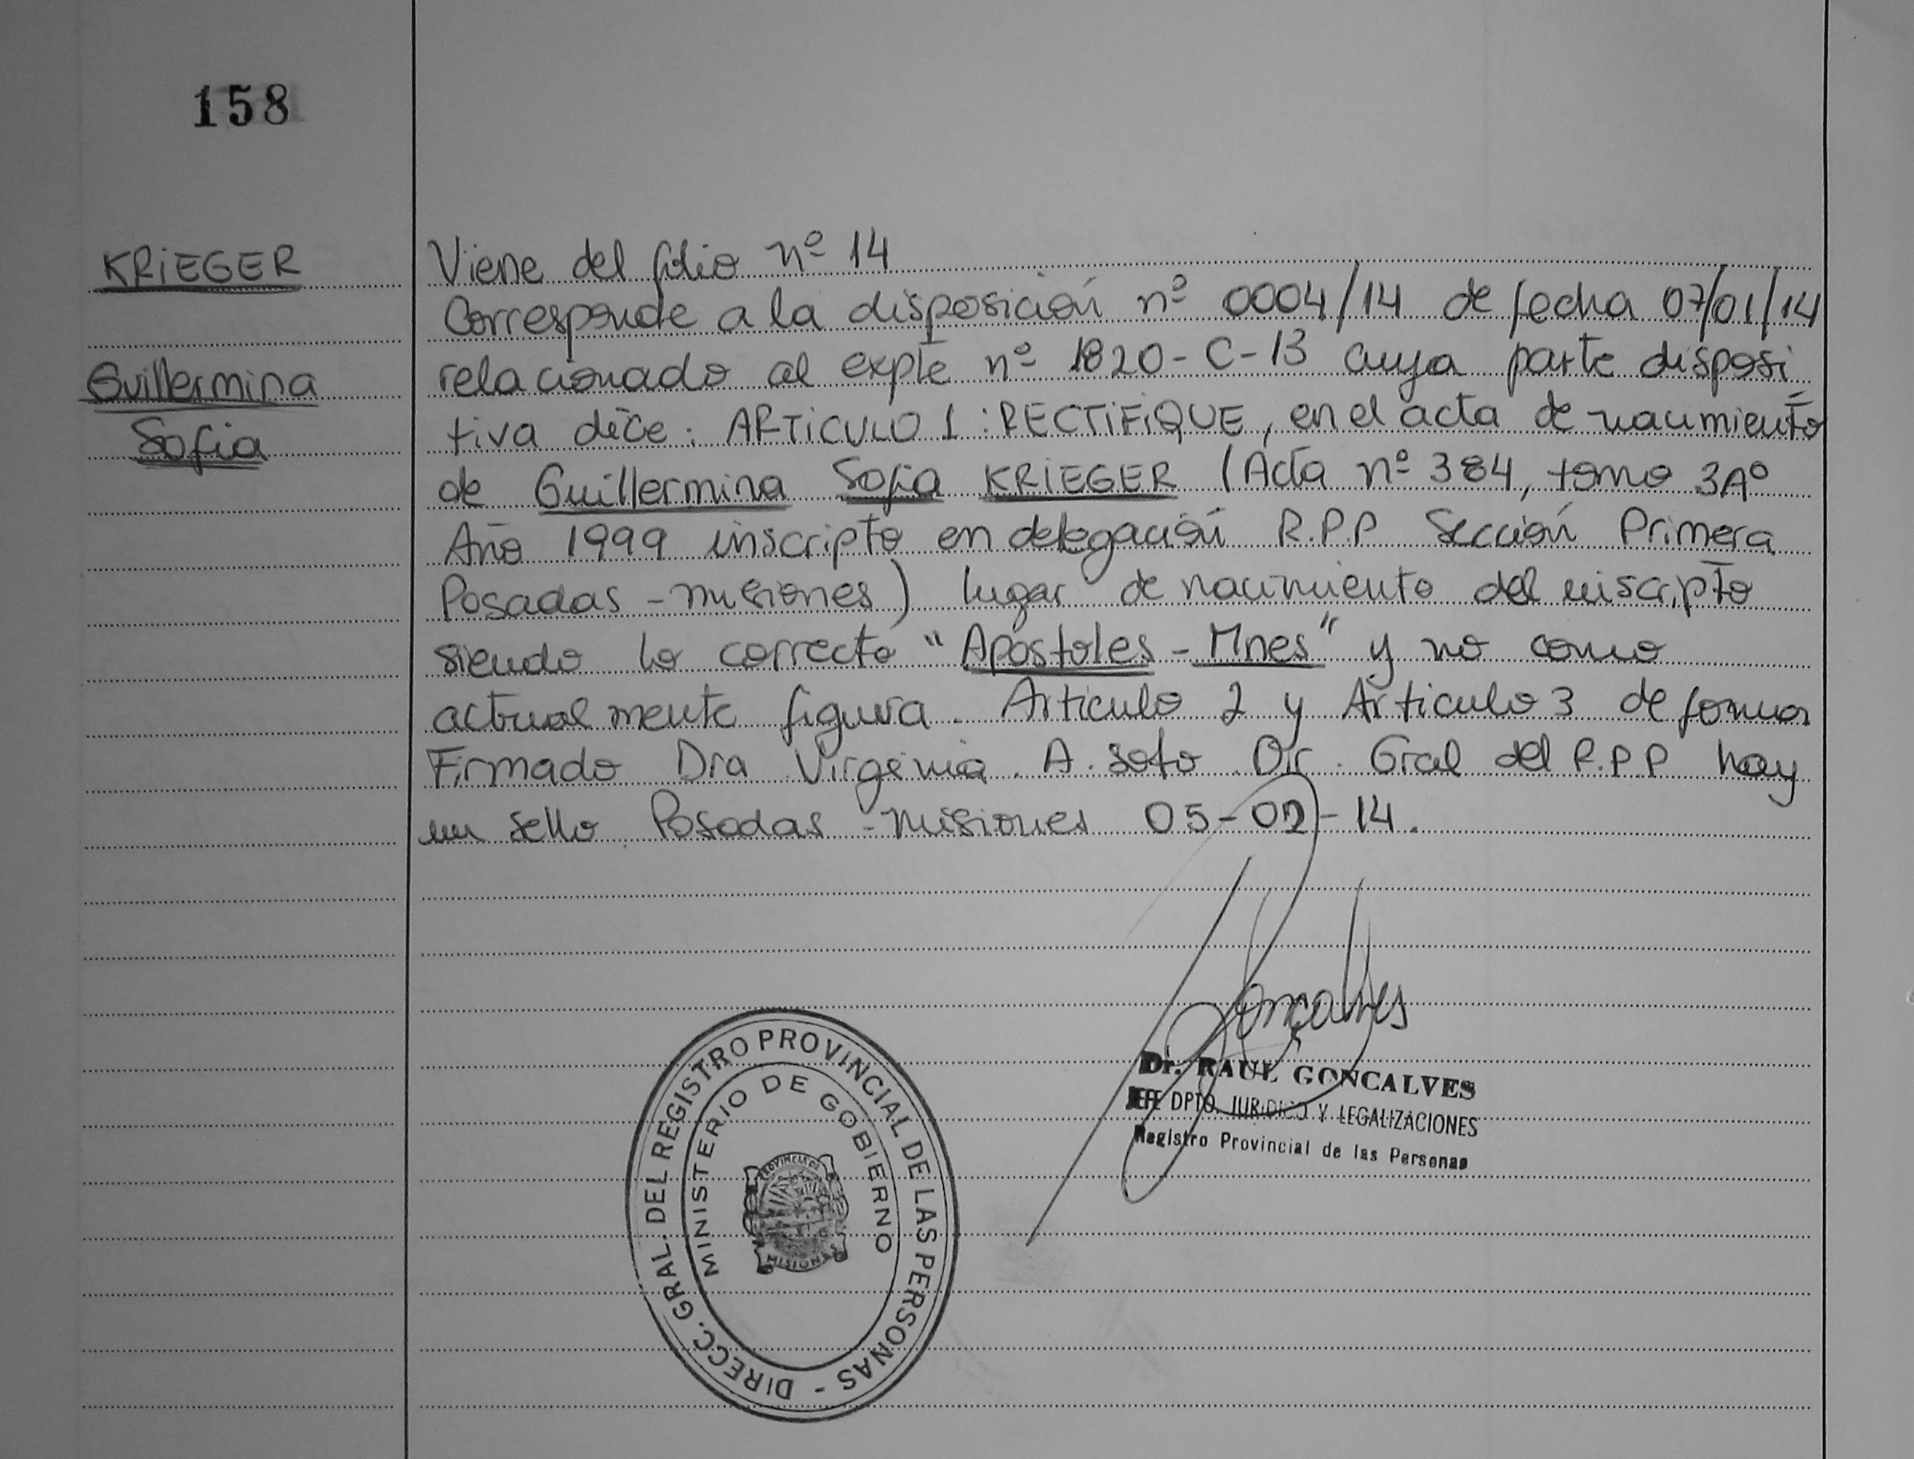 158
KRIEGER
Guillermina
Sofia
Viene del folio nº 14
Corresponde a la disposición nº 0004/14 de fecha 07/01/14
relacionado al expte nº 1820-C-13 cuya parte disposi
tiva dice: ARTICULO 1: RECTIFIQUE, en el acta de nacimiento
de Guillermina Sofia KRIEGER (Acta nº 384, tomo 3Aº
Año 1999 inscripto en delegación R.P.P Sección Primera
Posadas - misiones) lugar de nacimiento del inscripto
siendo lo correcto "Apostoles - Mnes" y no como
actualmente figura. Articulo 2 y Articulo 3 de forma
Firmado Dra Virginia. A. Soto. Dir. Gral del R.P.P hay
un sello Posadas - misiones 05-02-14.
Goncalves
Dr. RAUL GONCALVES
JEFE DPTO. JURIDICO Y LEGALIZACIONES
Registro Provincial de las Personas
DIRECC. GRAL. DEL REGISTRO PROVINCIAL DE LAS PERSONAS -
MINISTERIO DE GOBIERNO
PROVINCIA DE
MISIONES